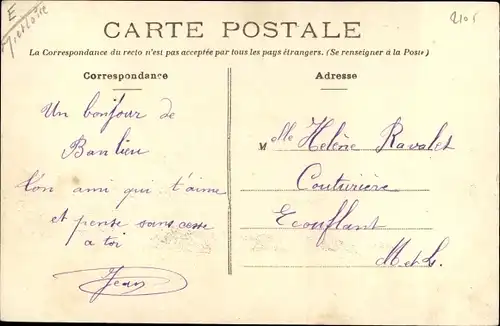 E
CARTE POSTALE
2105
La Correspondance du recto n'est pas acceptée par tous les pays étrangers. (Se renseigner à la Poste)
Correspondance
Un bonjour de
Banlieu
Ton ami qui t'aime
et pense sans cesse
a toi
Jean
Adresse
Mlle Helène Ravalet
Couturière
Ecouflant
M et L.